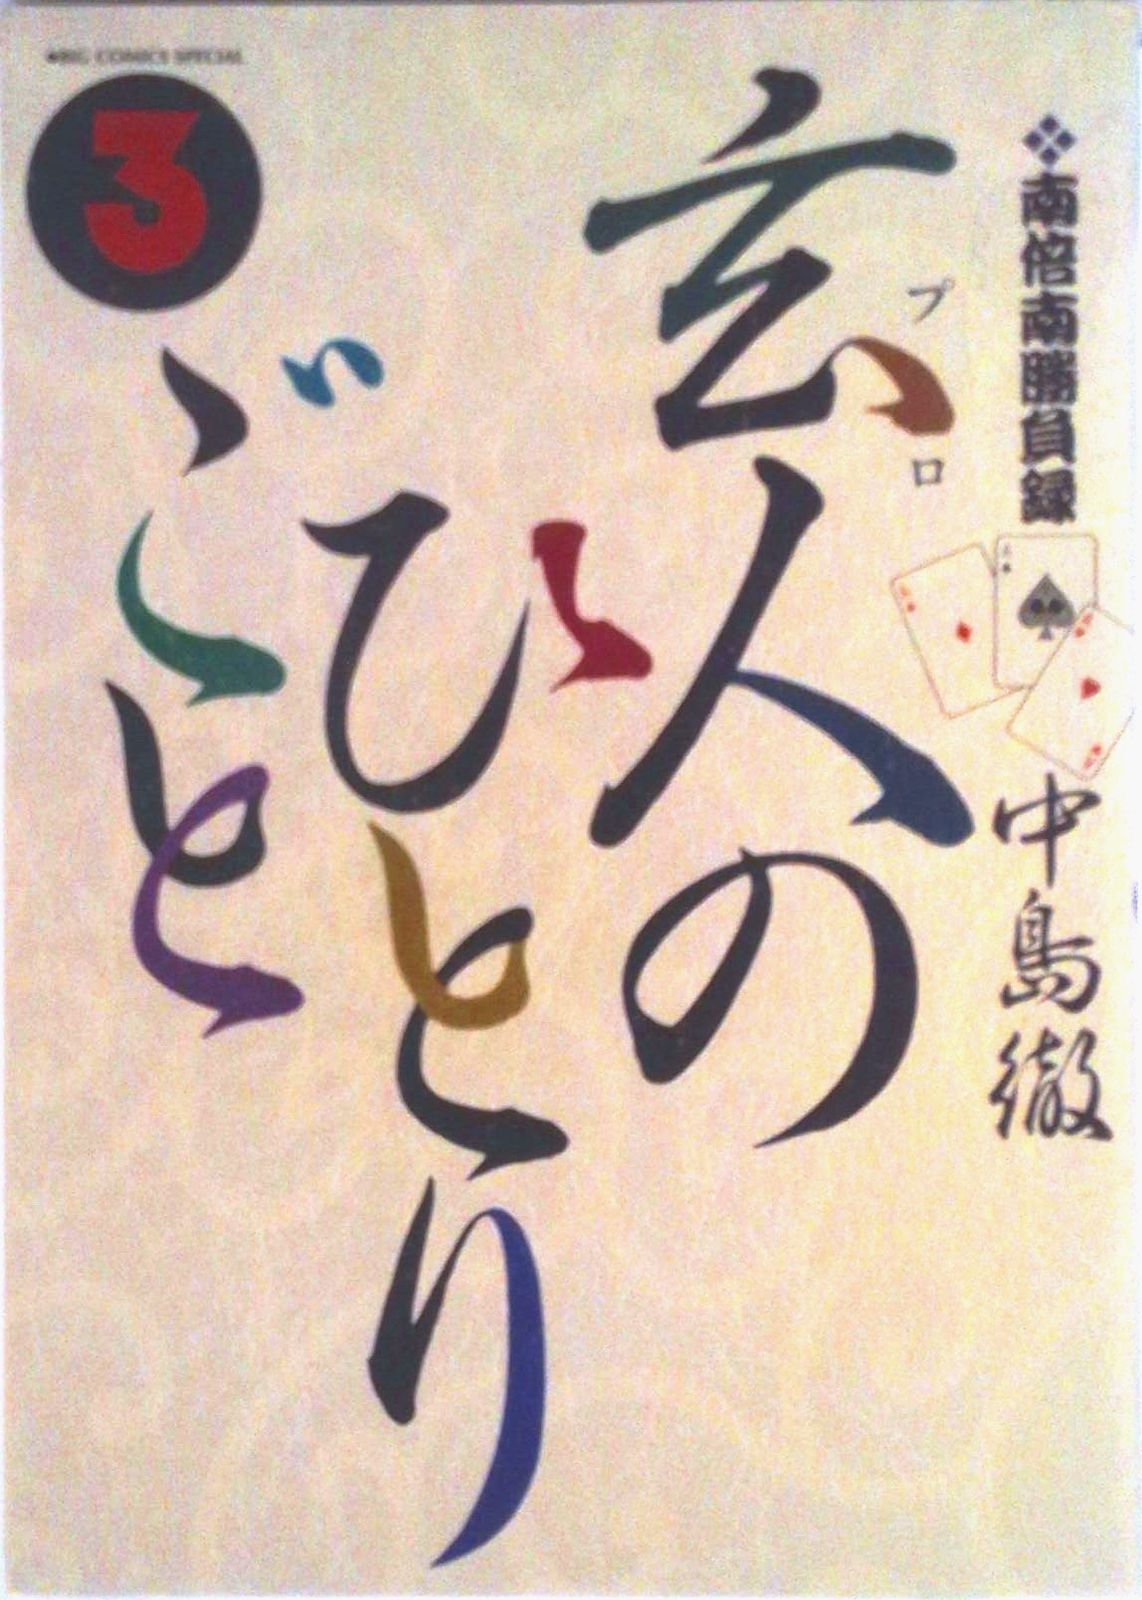 ●BIG COMICS SPECIAL
3
❖南倍南勝負録
中島徹
玄人の
プロ
ひとり
ごと